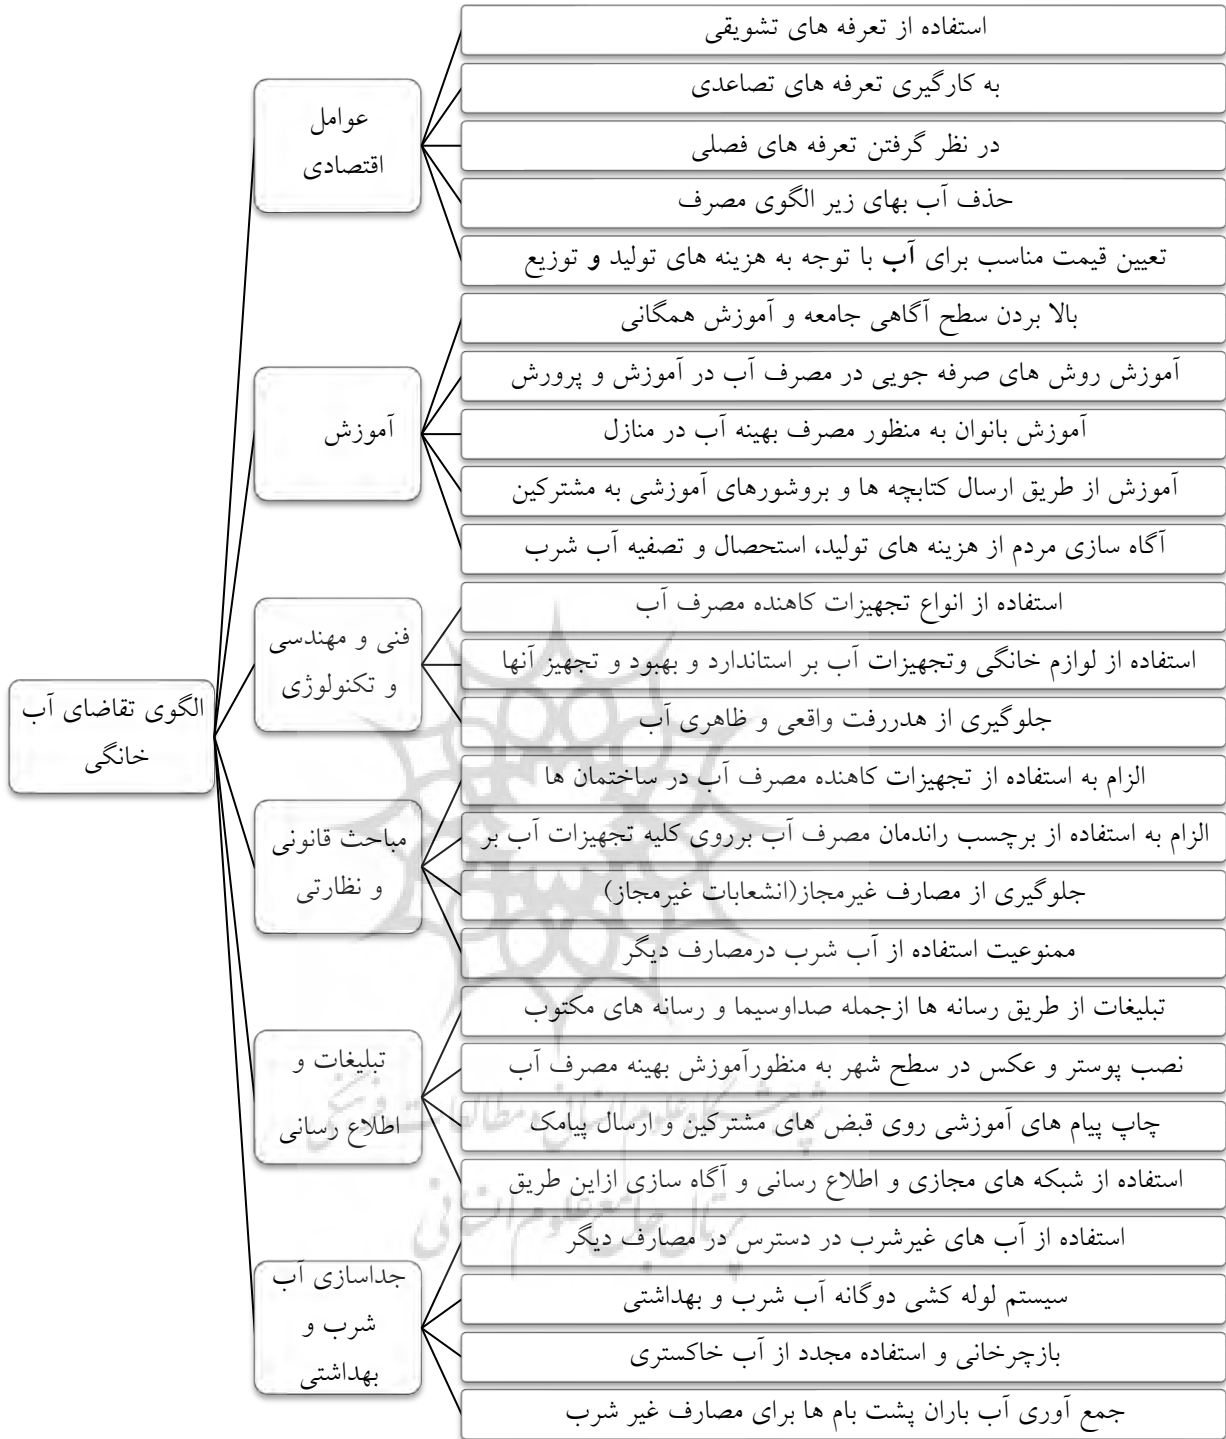 الگوی تقاضای آب
خانگی
عوامل
اقتصادی
استفاده از تعرفه های تشویقی
به کارگیری تعرفه های تصاعدی
در نظر گرفتن تعرفه های فصلی
حذف آب بهای زیر الگوی مصرف
تعیین قیمت مناسب برای آب با توجه به هزینه های تولید و توزیع
آموزش
بالا بردن سطح آگاهی جامعه و آموزش همگانی
آموزش روش های صرفه جویی در مصرف آب در آموزش و پرورش
آموزش بانوان به منظور مصرف بهینه آب در منازل
آموزش از طریق ارسال کتابچه ها و بروشورهای آموزشی به مشترکین
آگاه سازی مردم از هزینه های تولید، استحصال و تصفیه آب شرب
فنی و مهندسی
و تکنولوژی
استفاده از انواع تجهیزات کاهنده مصرف آب
استفاده از لوازم خانگی وتجهیزات آب بر استاندارد و بهبود و تجهیز آنها
جلوگیری از هدررفت واقعی و ظاهری آب
مباحث قانونی
و نظارتی
الزام به استفاده از تجهیزات کاهنده مصرف آب در ساختمان ها
الزام به استفاده از برچسب راندمان مصرف آب برروی کلیه تجهیزات آب بر
جلوگیری از مصارف غیرمجاز(انشعابات غیرمجاز)
ممنوعیت استفاده از آب شرب درمصارف دیگر
تبلیغات و
اطلاع رسانی
تبلیغات از طریق رسانه ها ازجمله صداوسیما و رسانه های مکتوب
نصب پوستر و عکس در سطح شهر به منظورآموزش بهینه مصرف آب
چاپ پیام های آموزشی روی قبض های مشترکین و ارسال پیامک
استفاده از شبکه های مجازی و اطلاع رسانی و آگاه سازی ازاین طریق
جداسازی آب
شرب و
بهداشتی
استفاده از آب های غیرشرب در دسترس در مصارف دیگر
سیستم لوله کشی دوگانه آب شرب و بهداشتی
بازچرخانی و استفاده مجدد از آب خاکستری
جمع آوری آب باران پشت بام ها برای مصارف غیر شرب
پژوهشگاه علوم انسانی و مطالعات فرهنگی
پرتال جامع علوم انسانی